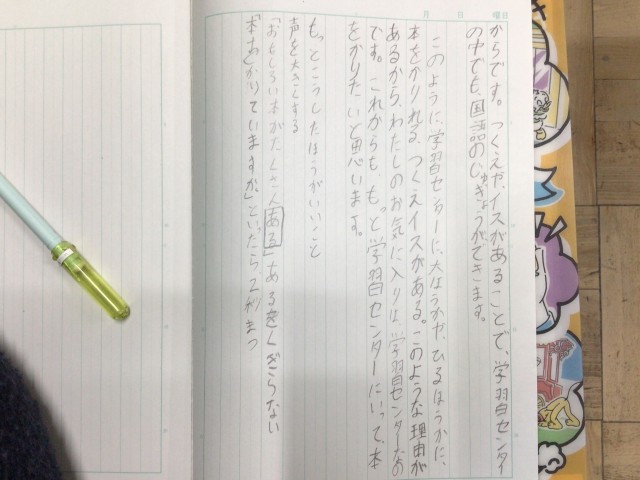 月 日 曜日
からです。つくえや、イスがあることで、学習センター
の中でも、国語のじゅぎょうができます。
このように、学習センターに大ほうかや、ひるほうかに、
本をかりれる、つくえイスがある。このような理由が
あるから、わたしのお気に入りは、学習センターなの
です。これからも、もっと学習センターにいって、本
をかりたいと思います。
もっとこうしたほうがいいこと
声を大きくする
「おもしろい本がたくさんある」あるをくぎらない
「本おかりていますか」といったら2秒まつ